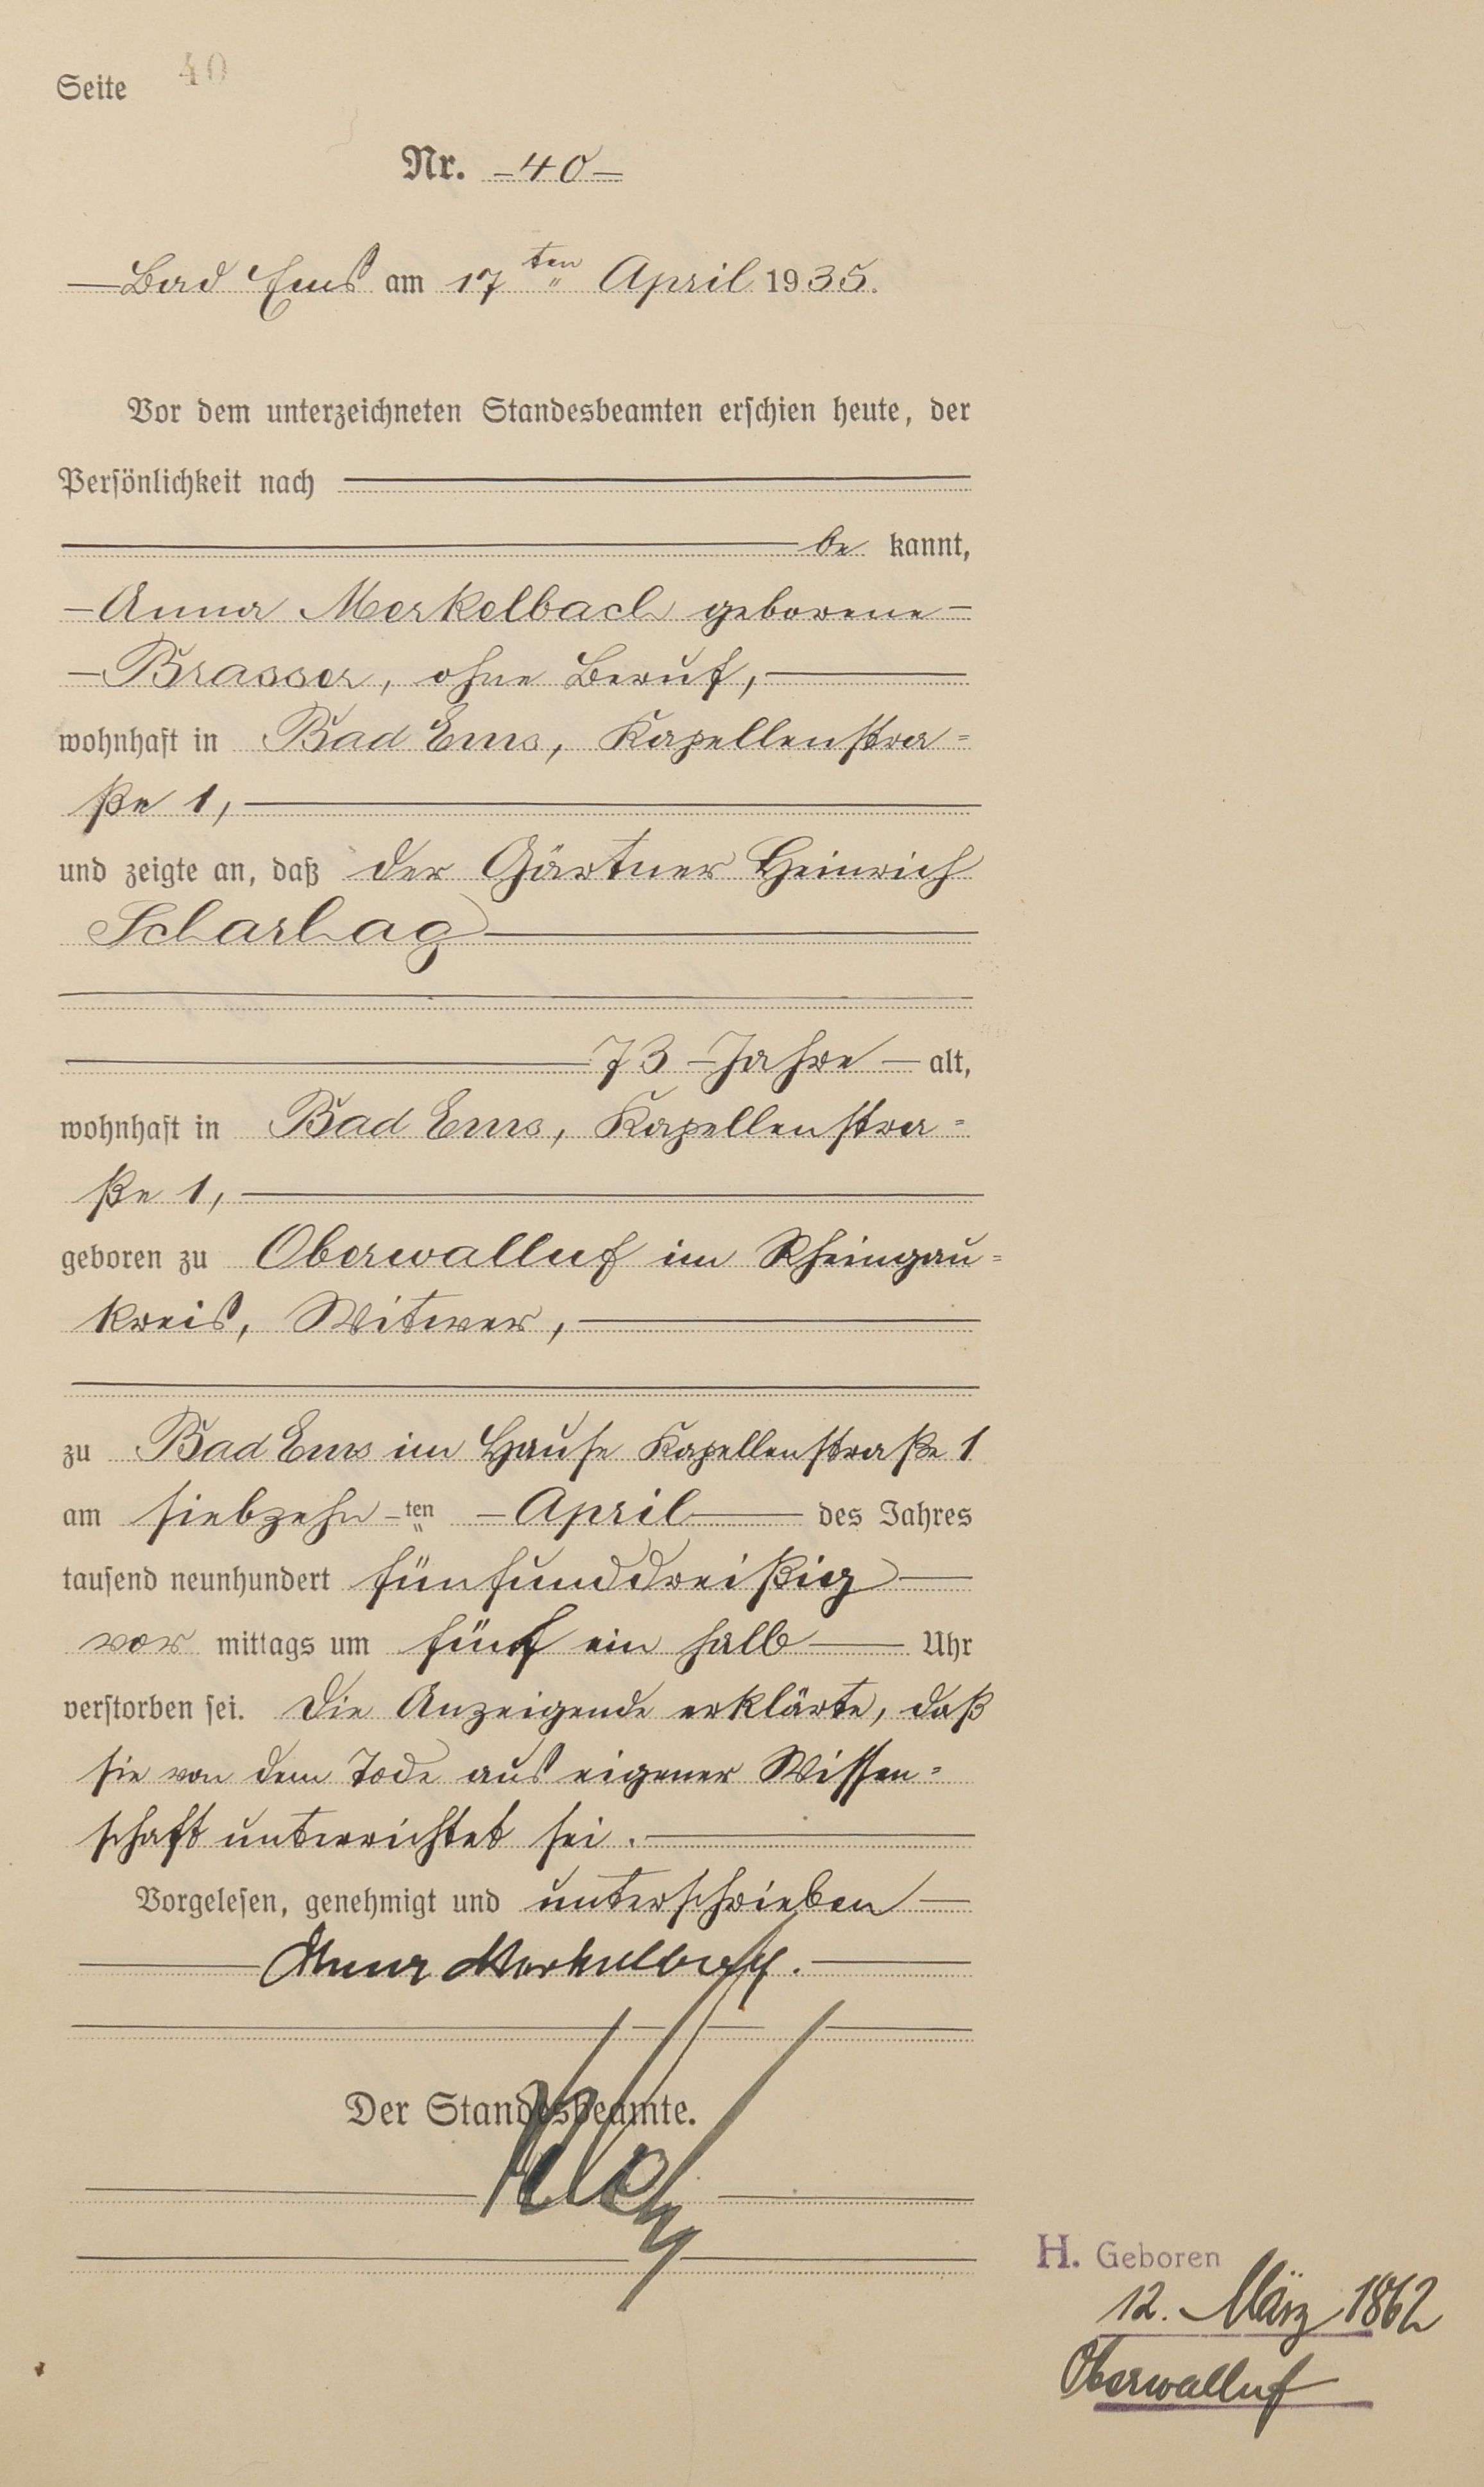 Seite 40
Nr. 40
Bad Ems am 17 ten April 1935.
Vor dem unterzeichneten Standesbeamten erschien heute, der
Persönlichkeit nach
be kannt,
Anna Merkelbach geborene
Brasser, ohne Beruf,
wohnhaft in Bad Ems, Kapellenstra=
ße 1,
und zeigte an, daß der Gärtner Heinrich
Scharhag
73 Jahre alt,
wohnhaft in Bad Ems, Kapellenstra=
ße 1,
geboren zu Oberwalluf im Rheingau=
kreis, Witwer,
zu Bad Ems im Hause Kapellenstraße 1
am siebzehn ten April des Jahres
tausend neunhundert fünfunddreißig
vor mittags um fünf ein halb Uhr
verstorben sei. Die Anzeigende erklärte, daß
sie von dem Tode aus eigener Wissen=
schaft unterrichtet sei.
Vorgelesen, genehmigt und unterschrieben
Anna Merkelbach.
Der Standesbeamte.
H. Geboren
12. März 1862
Oberwalluf